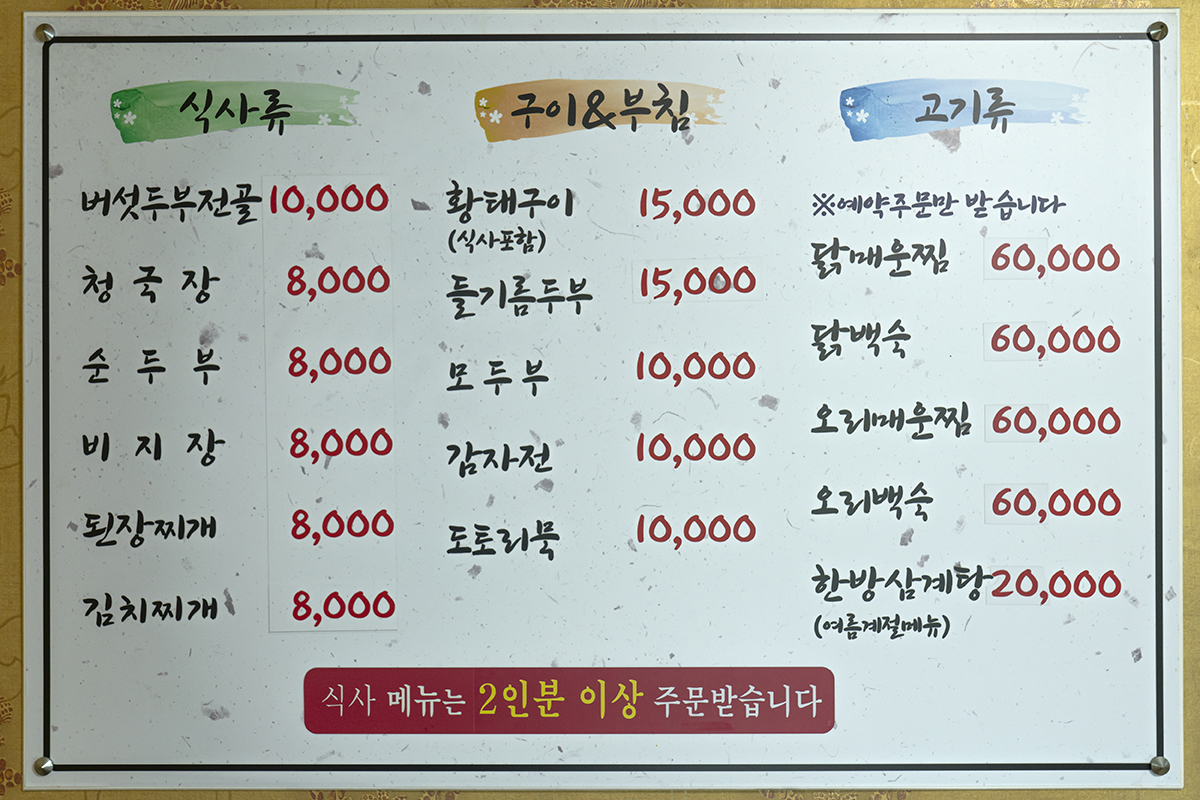 식사류
버섯두부전골 10,000
청국장 8,000
순두부 8,000
비지장 8,000
된장찌개 8,000
김치찌개 8,000
구이&부침
황태구이 15,000
(식사포함)
들기름두부 15,000
모두부 10,000
감자전 10,000
도토리묵 10,000
고기류
※예약주문만 받습니다
닭매운찜 60,000
닭백숙 60,000
오리매운찜 60,000
오리백숙 60,000
한방삼계탕 20,000
(여름계절메뉴)
식사 메뉴는 2인분 이상 주문받습니다